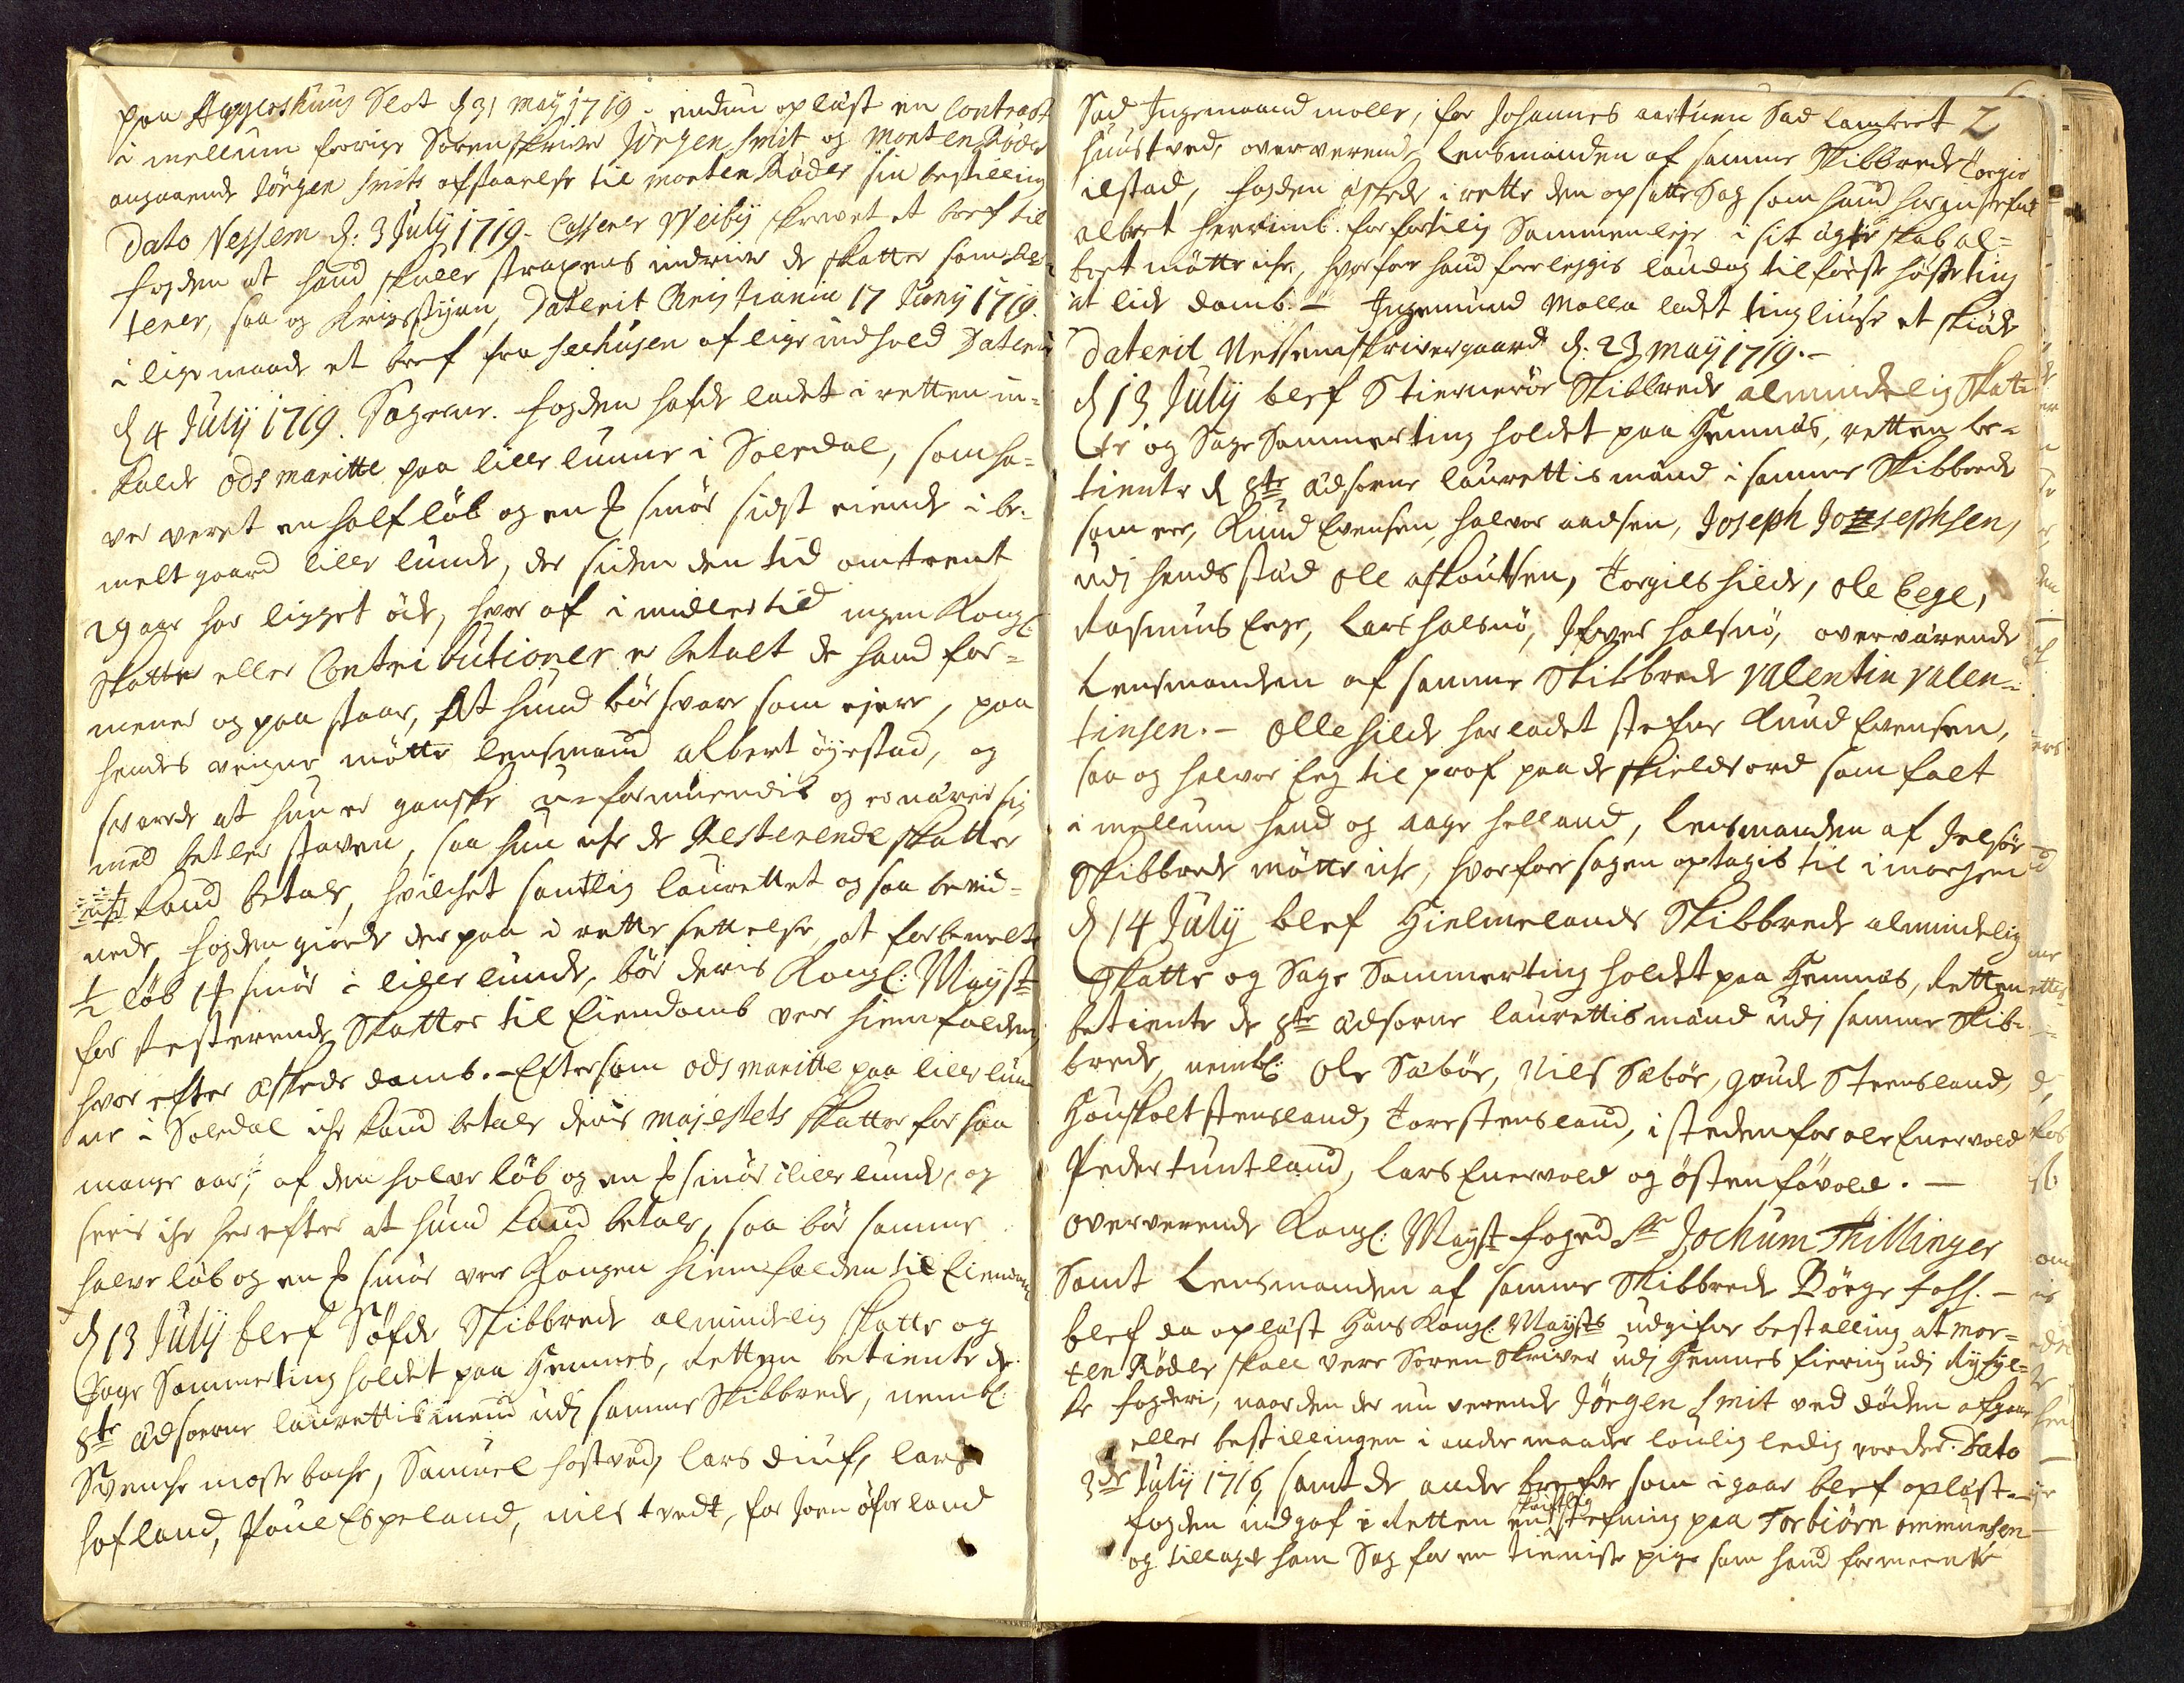 paa Aggershuus Slot d 31 Maÿ 1719 - endnu oplæst en Contract
i mellum forrige Sorenskriver Jörgen Smit og Morten Röder
angaaende Jörgen Smits afstaaelse til Morten Röder sin bestilling
Dato Nessem d: 3 Julÿ 1719. Casserer Weibÿ skrevet et bref til
fogden at hand skulle strapens indrive de skatter som
terer, saa og Krigsstÿren, Daterit Christiania 17 Junÿ 1719.
i lige maade et bref fra Seehusen af lige indhold Daterit
d 4 Julÿ 1719. Sagerne. fogden hafde ladet i retten in-
kalde Ods Maritte paa lille lunne i Soledal, som ha-
ver veret en half löb og en ℔ smör sidst eiende i be-
melt gaard lille lunde, der siden den tid omtrent
29 aar har ligget öde, hvor af i midlertid ingen Kongl:
Skatter eller Contributioner er betalt de hand for-
mener og paa staar, At hund bör svare som ejere, paa
hendes veigne mötte lensmand Albert öÿestad, og
svarede at hun er ganske u-formuendis og ernærer sig
med betler staven, saa hun iche de Resterende skatter
kand betale, hvilchet samtlig laurettet og saa bevid-
nede, fogden giorde der paa i rette settelse, at forbemelte
½ löb 1 ℔ smör i lille lunde, bör deris Kongl: Maÿst:
for resterende Skatter til Eiendomb vere hiemfalden,
hvor efter æskede domb. - Eftersom Ods Maritte paa lille lun-
ne i Soledal iche kand betale deris Majestets skatter for saa
mange aar, af den halve löb og en ℔ smör i lille lunde, og
seeis iche her efter at hund kand betale, saa bör samme
halve löb og en ℔ smör vere Kongen hiemfalden til Eiendom
d 13 Julÿ blef Söfde Skibbrede almindelig skatte og
Sage Sommerting holdet paa Hemnes, Retten betiente de
8te Ædsorne laurettismend udj samme Skibbrede, nembl:
Svenche Mosse boche, Samuel hostved, lars diuf, lars
hofland, Poul Espeland, Nils tvedt, for Joen öfverland
sad Ingemaand Molle, for Johannes aartuen sad Lambret 2
huustved, oververende Lensmanden af samme Skibbrede Torgir
ilstad, fogden æskede i rette den opsatte Sag som hand har instefnt
Albret Herrimb. for fortilig Sammenleje i sit ægteskab al-
bret mötte iche, hvorfor hand foreleggis laudag til förste höste ting
at lide domb. - Ingemund Molla ladet tingliuse et skiöde
Daterit Nessem skrivergaard d: 23 Maÿ 1719. -
d 13 Julÿ blef Stiernerör Skibbrede almindelig Skat-
te og Sage Sommerting holdet paa Hemnæs, retten be-
tiente d 8te ædsorne laurettismænd i samme Skibbrede
som ere, Knud Evensen, halvor aadsen, Joseph Josephsen,
udj hends stæd Ole Askoutsen, Torgils hilde, Ole Eege,
Rasmus Eege, Lars halsnö, Ifver halsnö, overværende
Lensmanden af samme Skibbrede Valentin Valen-
tinsen. - Olle hilde har ladet stefne Knud Evensen,
saa og halvor Eeg til prof paa de skieldsord som falt
i mellum hand og aage helland, Lensmanden af Jelsör
Skibbrede mötte iche, hvorfor sagen optagis til i morgen
d 14 Julÿ blef Hielmelands Skibbrede almindelig
Skatte og Sage Sommerting holdet paa Hemnæs, Retten
betiente de 8te ædsorne laurettismænd udj samme Skib-
brede, nembl: Ole Sæbör, Nils Sæbör, gaude Steensland,
Houskolt stensland, Tore stensland, i steden for ole Enervold
Peder tuntland, lars Enervold og östen fövold. -
oververende Kongl: Maÿst: foged Sr Jochum Thillinger
Samt Lensmanden af samme Skibbrede Börge Joh. -
blef da oplæst Hans Kongl: Maÿsts udgifne bestalling at Mor-
ten Röder skall vere Soren Skriver udj Hemnes fierting udj Rÿfÿl-
ke fogderi, naar den der nu verende Jörgen Smit ved döden afgaar
eller bestillingen i andre maader louлig ledig vorder. Dato
3de Julÿ 1716, samt de andre brefve som i gaar blef oplæst -
fogden indgaf i Retten skriftlig en stefning paa Torbiörn ommunsen
og tillagde ham Sag for en Tienniste pige som hand formeente